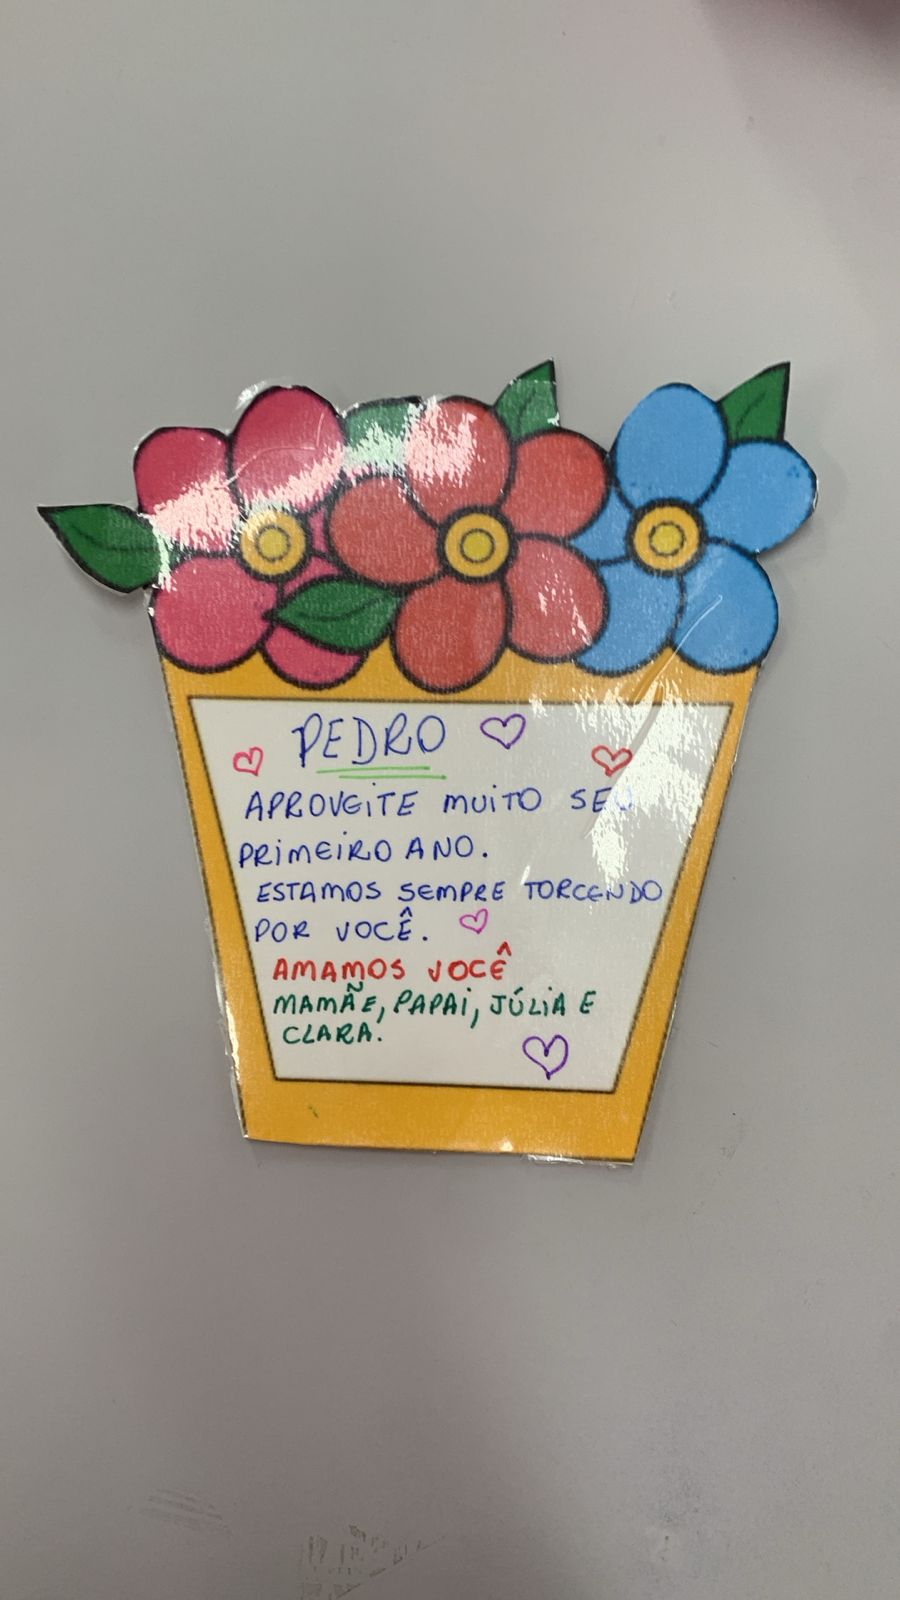 PEDRO
APROVEITE MUITO SEU
PRIMEIRO ANO.
ESTAMOS SEMPRE TORCENDO
POR VOCÊ.
AMAMOS VOCÊ
MAMÃE, PAPAI, JÚLIA E
CLARA.